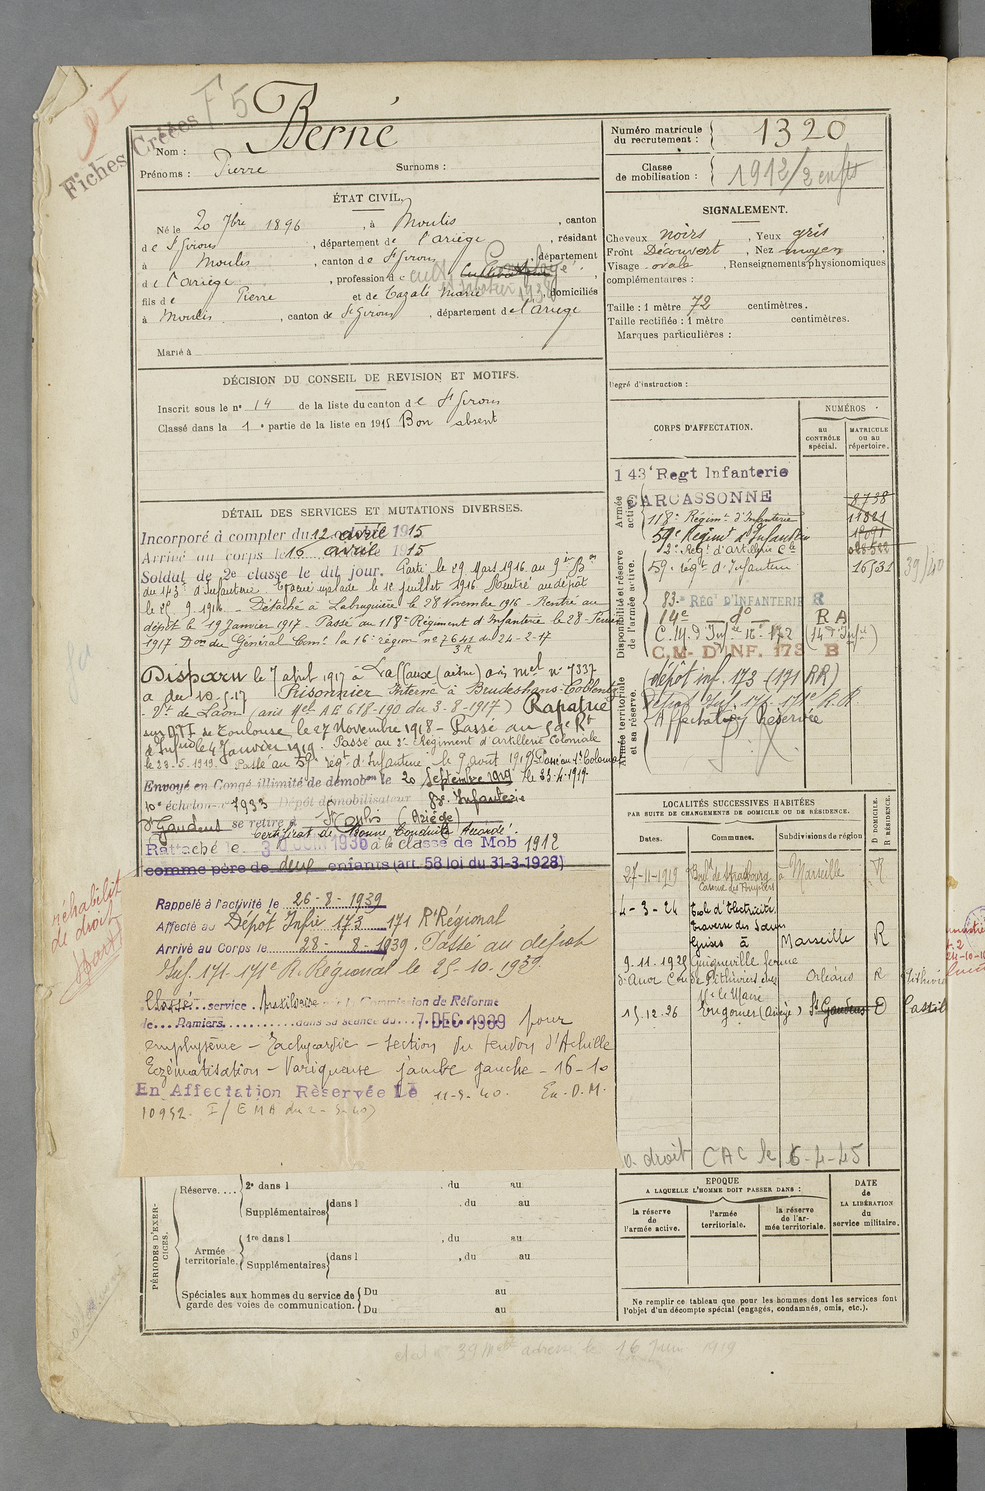 Fiches Créées
F5
Nom : Berné
Prénoms : Pierre Surnoms :
ÉTAT CIVIL.
Né le 20 7bre 1896, à Moulis, canton
de St Girons, département de l'Ariège, résidant
à Moulis, canton de St Girons, département
de l'Ariège, profession de cult.
fils de Pierre et de Cazalé Marie, domiciliés
à Moulis, canton de St Girons, département de l'Ariège
Marié à
DÉCISION DU CONSEIL DE REVISION ET MOTIFS.
Inscrit sous le n° 14 de la liste du canton de St Girons
Classé dans la 1e partie de la liste en 1915 Bon absent
DÉTAIL DES SERVICES ET MUTATIONS DIVERSES.
Incorporé à compter du 12 avril 1915
Arrivé au corps le 16 avril 1915
Soldat de 2e classe le dit jour. Parti le 29 Mars 1916 au 9e Bon
du 143e d'Infanterie. Evacué malade le 12 juillet 1916. Rentré au dépôt
le 25-9-1916 - Détaché à Labruguière le 28 Novembre 1916 - Rentré au
dépôt le 19 janvier 1917 - Passé au 118e Régiment d'Infanterie le 28 Février
1917 Don du Général Comt la 16e région n° 7641 du 24-2-17
Disparu le 7 avril 1917 à Laffaux (aisne) avis mel n° 7337
du 10-5-17 Prisonnier Interné à
de Laon (avis Mel AE 618-190 du 3-8-1917) Rapatrié
de Toulouse le 27 Novembre 1918 - Passé au 59e Rt
d'Infrie le 4 Janvier 1919. Passé au 2e Régiment d'Artillerie Coloniale
le 28-5-1919. Passé au 59e régt d'Infanterie le 9 août 1919
Envoyé en Congé illimité de démobon le 20 Septembre 1919
10e échelon n° 7933 Dépôt démobilisateur 83e Infanterie
St Gaudens se retire à (Ariège)
Certificat de Bonne Conduite Accordé.
Rattaché le 3 1936 à la classe de Mob 1912
comme père de deux enfants (art. 58 loi du 31-3-1928)
Rappelé à l'activité le 26-8-1939
Affecté au Dépôt Infie 173 171 Rt Régional
Arrivé au Corps le 28-8-1939. Passé au dépôt
Inf. 171-171e R. Régional le 25-10-1939.
Classé service Auxiliaire par la Commission de Réforme
de Pamiers dans sa séance du 7 DEC 1939 pour
emphysème - Tachycardie - section du tendon d'Achille
Eczématisation - Variqueuse jambe gauche - 16-10
En Affectation Réservée Le 11-3-40. En. D.M.
10952. I/EMA du 2-3-40)
réhabilité
de droit
PÉRIODES D'EXERCICES.
Réserve.... 2e dans l , du au
Supplémentaires dans l , du au
Armée territoriale. 1re dans l , du au
Supplémentaires dans l , du au
Spéciales aux hommes du service de garde des voies de communication. Du au
Du au
Numéro matricule du recrutement : 1320
Classe de mobilisation : 1912/2 enfts
SIGNALEMENT.
Cheveux noirs, Yeux gris,
Front Découvert, Nez moyen
Visage ovale, Renseignements physionomiques
complémentaires :
Taille : 1 mètre 72 centimètres.
Taille rectifiée : 1 mètre centimètres.
Marques particulières :
Degré d'instruction :
CORPS D'AFFECTATION.
NUMÉROS
au CONTRÔLE spécial.
MATRICULE ou au répertoire.
Armée active.
143e Regt Infanterie
CARCASSONNE 8738
118e Régimt d'Infanterie 11821
59e Régimt d'Infanterie
2e Régt d'Artillerie Cle
Disponibilité et réserve de l'armée active.
59e régt d'Infanterie 16731
83e RÉGt D'INFANTERIE R
14e do R A
C.M. d'Infie 16e 172 (14 d'Infie)
C.M. D'INF. 173 B
Armée territoriale et sa réserve.
(dépôt inf. 173 (171 RR)
Dépôt Inf. 171. 171e R.R.
Affectation Réservée
LOCALITÉS SUCCESSIVES HABITÉES
PAR SUITE DE CHANGEMENTS DE DOMICILE OU DE RÉSIDENCE.
Dates. Communes. Subdivisions de région D DOMICILE. R RÉSIDENCE.
27-11-1919 Bould de Strasbourg à Marseille R
Caserne des Pompiers
4-3-24 Ecole d'Electricité.
traverse des Sœurs
Grises à Marseille R
9.11.1925 Guigneville ferme
Con de Pithiviers chez Orléans R
Mr le Maire
15.12.26 Engomer (Ariège) St Gaudens D
a droit CAC le 6-4-45
EPOQUE
A LAQUELLE L'HOMME DOIT PASSER DANS :
la réserve de l'armée active.
l'armée territoriale.
la réserve de l'armée territoriale.
DATE de LA LIBÉRATION du service militaire.
Ne remplir ce tableau que pour les hommes dont les services font
l'objet d'un décompte spécial (engagés, condamnés, omis, etc.).